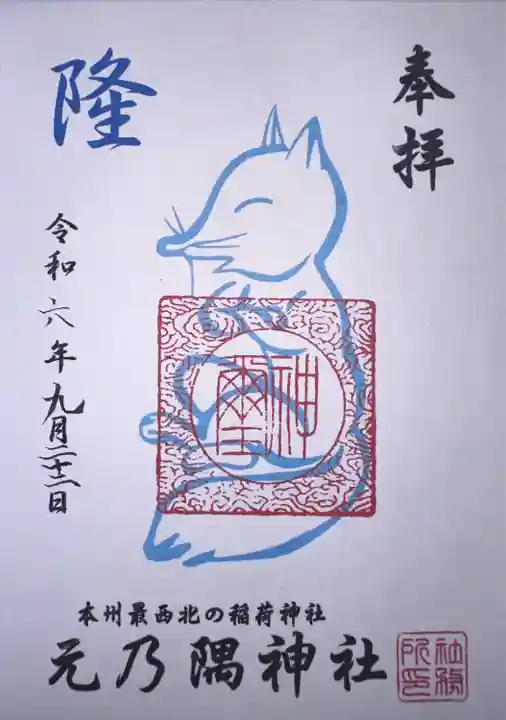 奉拝
隆
令和六年九月二十二日
神璽
本州最西北の稲荷神社
元乃隅神社
社務所印